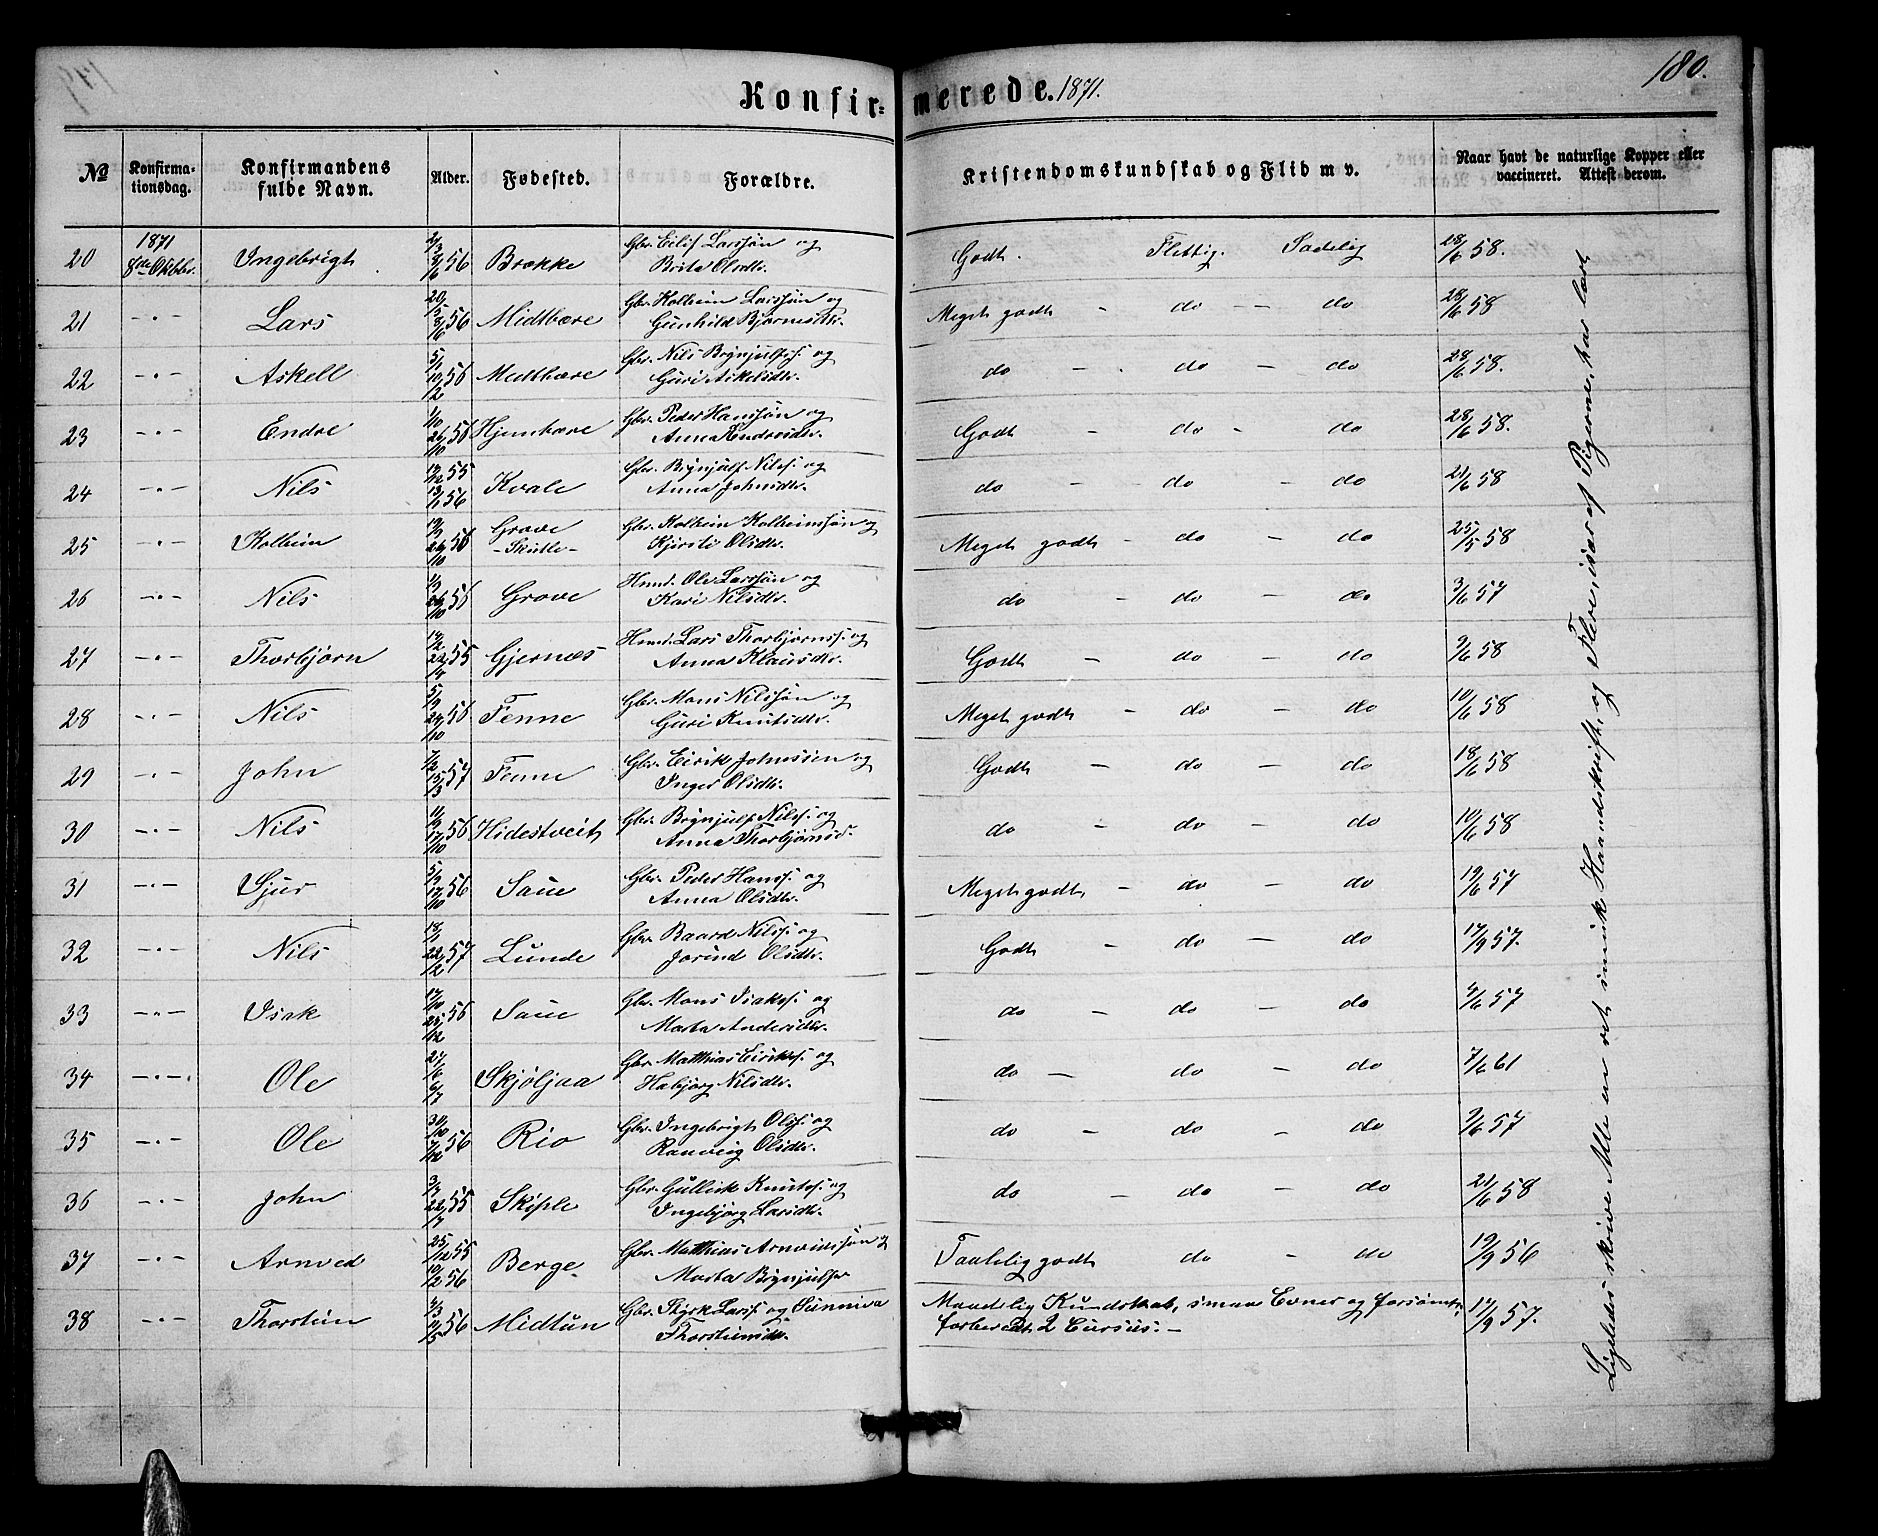 180.
Konfirmerede. 1871.
No Konfirmationsdag. Konfirmandens fulde Navn. Alder. Fødested. Forældre. Kristendomskundskab og Flid m v. Naar havt de naturlige Kopper eller vaccineret. Attest derom.
20 1871 8de Oktbr. Ingebrigt 2/3 8/6 56 Brække Gbr. Eilif Larssøn og Brita Olsdtr. Godt. Flittig. Sædelig 28/6 58.
21 -"- Lars 20/5 8/6 56 Midtbære Gbr. Kolbein Larssøn og Gunhild Bjørnsdtr. Meget godt - do - - do 28/6 58
22 -"- Askell 5/1 10/2 56 Midtbære Gbr. Nils Brynjulfs. og Guri Askelsdtr. do - . do - do 28/6 58.
23 -"- Endre 1/10 26/10 56 Hjembære Gbr. Peder Hanssøn og Anna Endresdtr. Godt - do - do 28/6 58.
24 -"- Nils 19/12 55 13/1 56 Kvale Gbr. Brynjulf Nilss. og Anna Johnsdtr. do - do - do 21/6 58
25 -"- Kolbein 19/9 26/10 56 Grove -Skutle- Gbr. Kolbein Kolbeinssøn og Kjersti Olsdtr. Meget godt - do - do 25/5 58
26 -"- Nils 1/9 26/10 56 Grove Hmd. Ole Larssøn og Kari Nilsdtr. do - do - do 3/6 57
27 -"- Thorbjørn 12/2 22/4 55 Gjernæs Hmd. Lars Thorbjørnss. og Anna Klausdtr. Godt - do - do 9/6 58
28 -"- Nils 5/9 24/10 56 Fenne Gbr. Mons Nilssøn og Guri Knutsdtr. Meget godt - do - do 10/6 58
29 -"- John 7/2 15/3 57 Fenne Gbr. Eirik Johnssøn og Inger Olsdtr. Godt - do - do 18/6 58
30 -"- Nils 11/9 17/10 56 Hidestveit Gbr. Brynjulf Nilss. og Anna Thorbjørnsd. do - do - do 10/6 58
31 -"- Sjur 5/9 12/10 56 Saue Gbr. Peder Hanss. og Anna Olsdtr. Meget godt - do - do 19/6 57
32 -"- Nils 18/1 22/2 57 Lunde Gbr. Baard Nilss. og Jorind Olsdtr. Godt - do - do 17/9 57.
33 -"- Isak 17/10 25/12 56 Saue Gbr. Mons Isaks. og Marta Andersdtr. do - do - do 4/6 57
34 -"- Ole 27/6 6/7 Skjøljaa Gbr. Matthias Eiriks. og Habjørg Nilsdtr. do - do - do 7/6 61
35 -"- Ole 30/10 7/12 56 Rio Gbr. Ingebrigt Olss. og Ranveig Olsdtr. do - do - do 9/6 57
36 -"- John 3/7 22/7 55 Skiple Gbr. Gullick Knuts. og Ingebjørg Larsdtr. do - do - do 21/6 58
37 -"- Arnved 25/12 55 10/2 56 Berge Gbr. Matthias Arnvedssøn og Marta Brynjulfsr Taalelig godt do - do 19/9 56
38 -"- Thorstein 2/3 12/5 56 Midtun Gbr. Styrk Larss. og Sunniva Thorsteinsdr. Maadelig Kundskab, smaa Evner og forsømt, forberedt 2 Cursus. - 17/9 57.
Ligeledes skrive Alle en ret smuk Haandskrift, og Flere, især af Pigerne, har lært